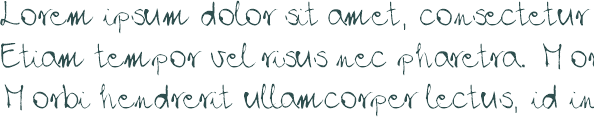 Lorem ipsum dolor sit amet, consectetur
Etiam tempor vel risus nec pharetra. Mor
Morbi hendrerit ullamcorper lectus, id in